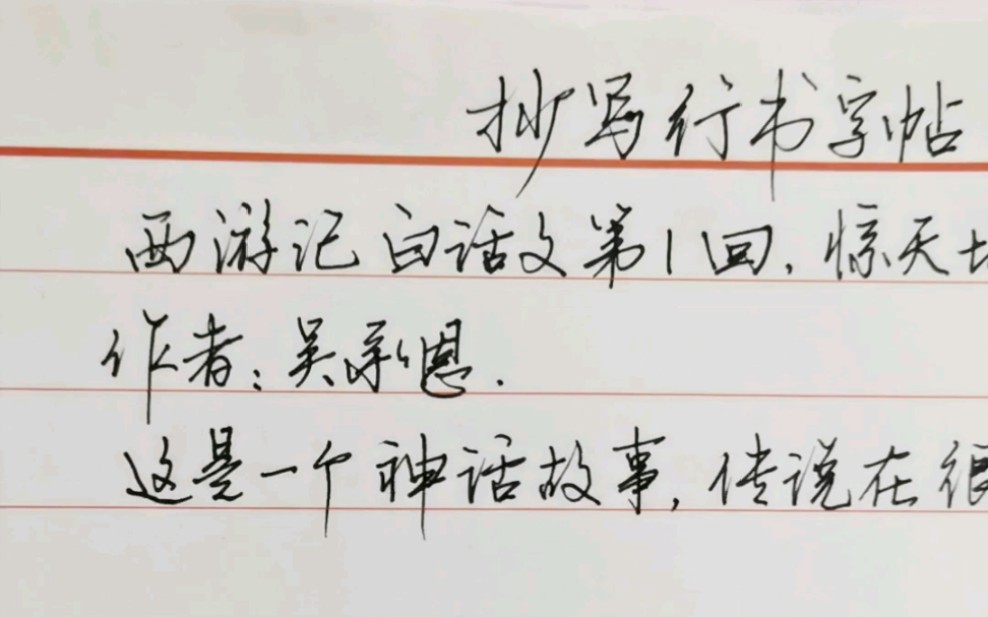 抄写行书字帖
西游记白话文第1回,惊天
作者:吴承恩.
这是一个神话故事,传说在很